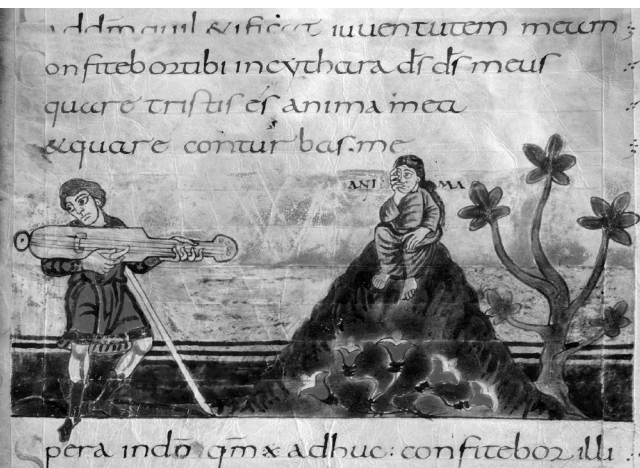 iuuentutem meam
onfitebortibi incythara ds ds meus
quare tristis es anima mea
&quare conturbas.me
ANI MA
pera indo qm x adhuc: confitebor illi